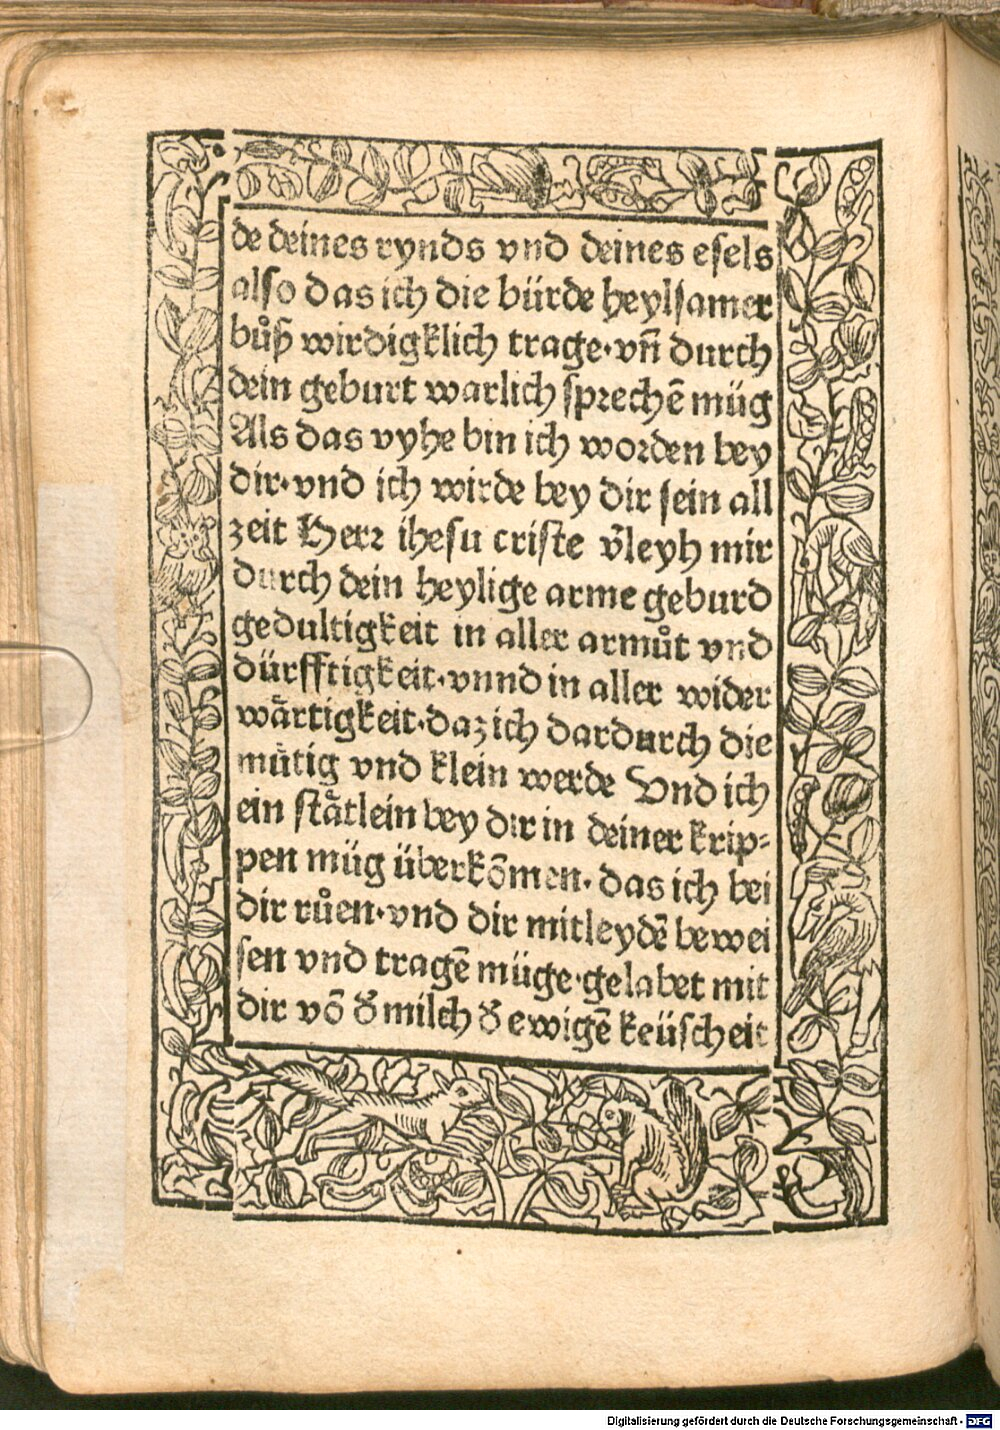 de deines rynds vnd deines esels
also das ich die bürde heylsamer
bůß wirdigklich trage·vn̄ durch
dein geburt warlich sprechē müg
Als das vyhe bin ich worden bey
dir·vnd ich wirde bey dir sein all
zeit Herr ihesu criste v̄leyh mir
durch dein heylige arme geburd
gedultigkeit in aller armůt vnd
dürfftigkeit·vnnd in aller wider
wärtigkeit·daz ich dardurch die
mütig vnd klein werde Vnd ich
ein stätlein bey dir in deiner krip-
pen müg überkōmen·das ich bei
dir růen·vnd dir mitleydē bewei
sen vnd tragē müge·gelabet mit
dir vō d̓ milch d̓ ewigē keüscheit
Digitalisierung gefördert durch die Deutsche Forschungsgemeinschaft - DFG